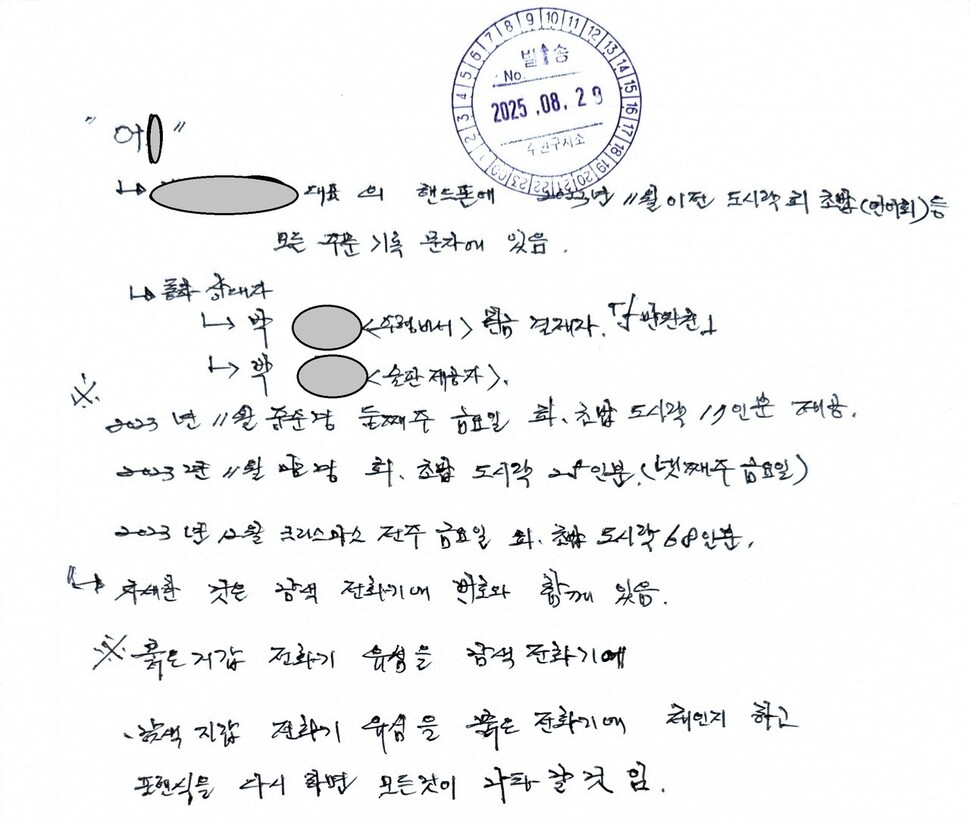 발송
No.
2025.08.29
수원구치소
"어 "
↳ 대표의 핸드폰에 2023년 11월 이전 도시락 회 초밥(연어회)등
모든 주문 기록 문자에 있음.
↳ 통화 상대자
↳ 박 <수행비서> 현금 결제자.
↳ 박 <술판 제공자>.
※
2023년 11월 중순경 둘째주 금요일 회.초밥 도시락 19인분 제공.
2023년 11월 말경 회.초밥 도시락 28인분.(넷째주 금요일)
2023년 12월 크리스마스 전주 금요일 회.초밥 도시락 68인분.
↳ 자세한 것은 검색 전화기에 번호와 함께 있음.
※ 붉은 지갑 전화기 유심을 검색 전화기에
검색 지갑 전화기 유심을 붉은 전화기에 체인지 하고
포렌식을 다시 하면 모든것이 나타 날 것 임.